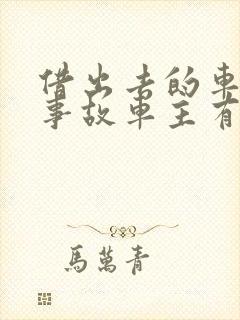 借出去的車
事故車主有
馬萬青